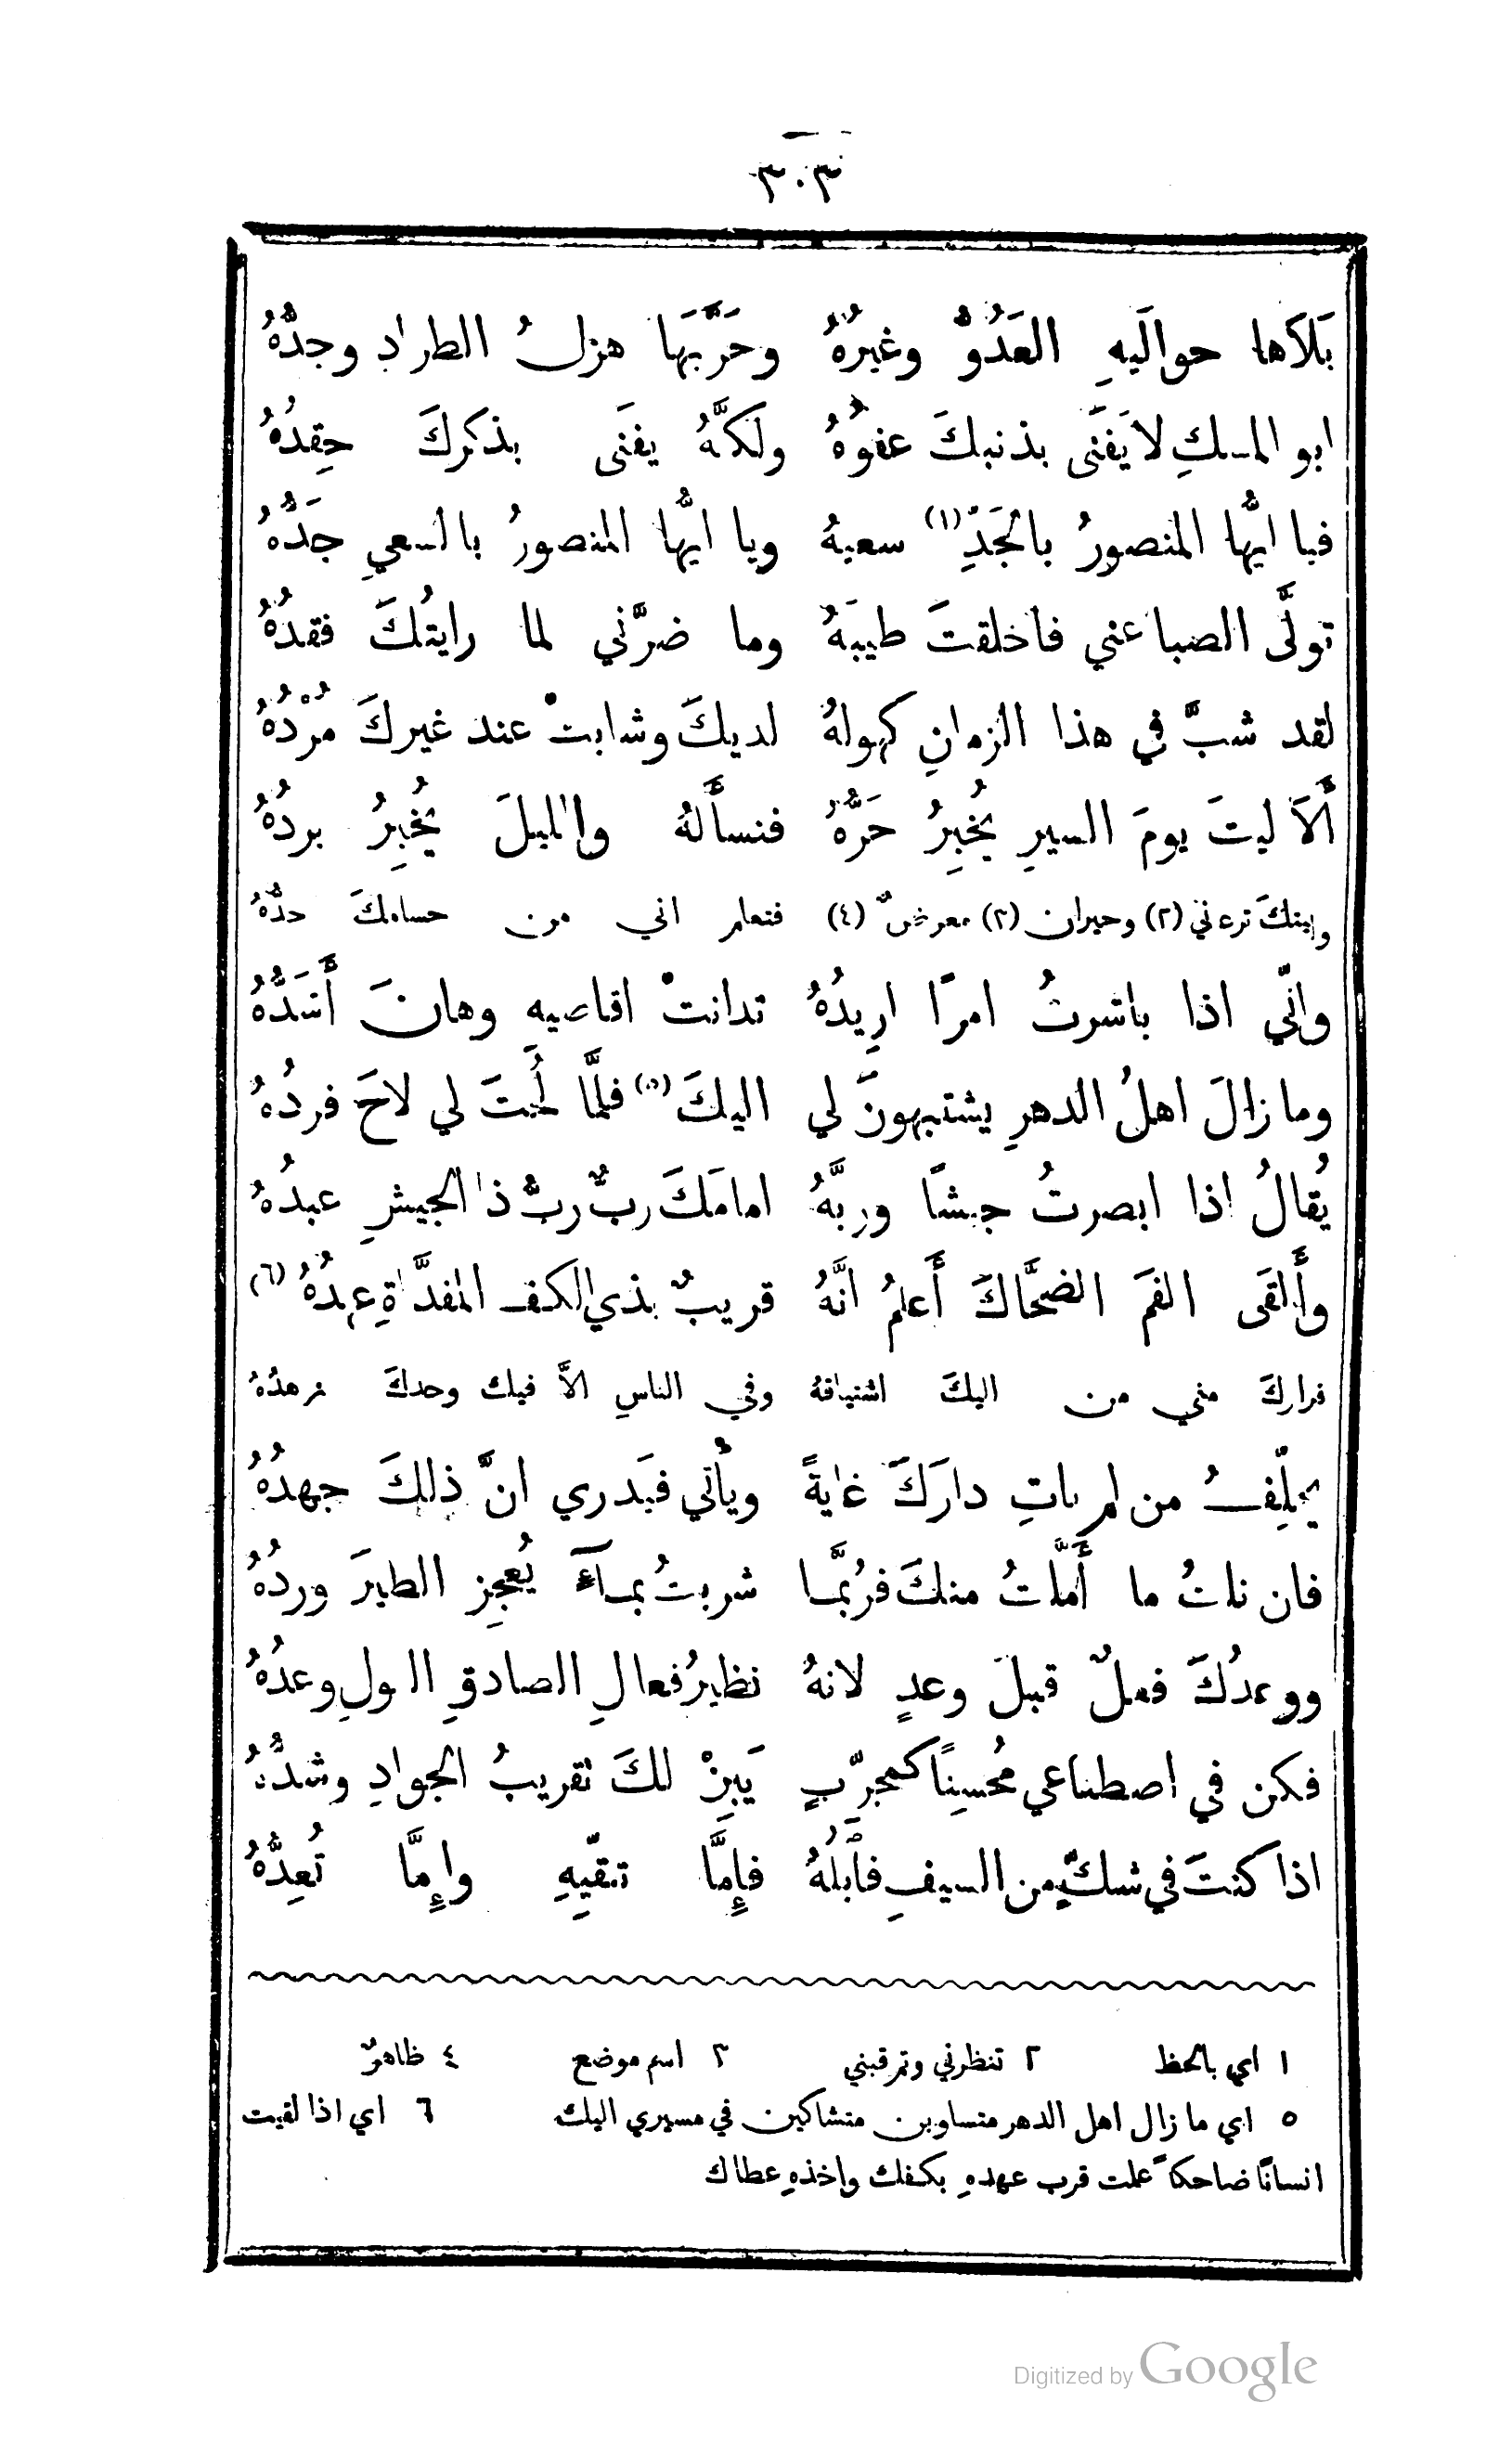 ٣٠٣
بَلَاها حوالَيهِ العَدُوُّ وغيرُهُ وحَرَّبَها هزلُ الطرادِ وجدُّهُ
ابو المسكِ لا يَفنَى بذنبكَ عفوُهُ ولكنَّهُ يفنَى بذكركَ حِقدُهُ
فيا ايُّها المنصورُ بالجَدِّ (١) سعيهُ ويا ايُّها المنصورُ بالسعيِ جَدُّهُ
تولَّى الصبا عني فاخلفتَ طيبَهُ وما ضرَّني لما رايتُكَ فقدُهُ
لقد شبَّ في هذا الزمانِ كهولهُ لديكَ وشابتْ عند غيركَ مُرْدُهُ
أَلَا ليتَ يومَ السيرِ يُخبِرُ حَرُّهُ فنسأَلهُ والليلَ يُخبِرُ بردُهُ
وليتكَ ترعاني (٢) وحيران (٣) معرضٌ (٤) فتعلم اني من حسامكَ حدُّهُ
وانّي اذا باشرتُ امرًا اريدُهُ تدانتْ اقاصيهِ وهانَ أَشَدُّهُ
وما زالَ اهلُ الدهرِ يشتبهونَ لي اليكَ (٥) فلمَّا لُحتَ لي لاحَ فردُهُ
يُقالُ اذا ابصرتُ جيشًا وربَّهُ امامَكَ ربٌّ ربُّ ذا الجيشِ عبدُهُ
وأَلقَى الفمَ الضحَّاكَ أَعلمُ انَّهُ قريبٌ بذي الكف المفدَّاةِ عهدُهُ (٦)
فزارك مني من اليكَ اشتياقهُ وفي الناسِ الَّا فيك وحدكَ زهدُهُ
يخلِّفُ من لم ياتِ دارَكَ غايةً ويأتي فيَدري انَّ ذلِكَ جهدُهُ
فان نلتُ ما أَمَّلتُ منكَ فرُبَّما شربتُ بماءَ يُعجِز الطيرَ وردُهُ
ووعدُكَ فعلٌ قبلَ وعدٍ لانهُ نظيرُ فعالِ الصادقِ القولِ وعدُهُ
فكن في اصطناعي مُحسِنًا كمجرِّبٍ يَبِنْ لكَ تقريبُ الجوادِ وشدُّهُ
اذا كنتَ في شكٍّ من السيفِ فابْلُهُ فإِمَّا تنقّيهِ وإِمَّا تُعِدُّهُ
١ اي بالحظ ٢ تنظرني وترقبني ٣ اسم موضع ٤ ظاهرٌ
٥ اي ما زال اهل الدهر متساوين متشاكلين في مسيري اليك ٦ اي اذا لقيت
انسانًا ضاحكًا علمت قرب عهدهِ بكفك واخذهِ عطاك
Digitized by Google